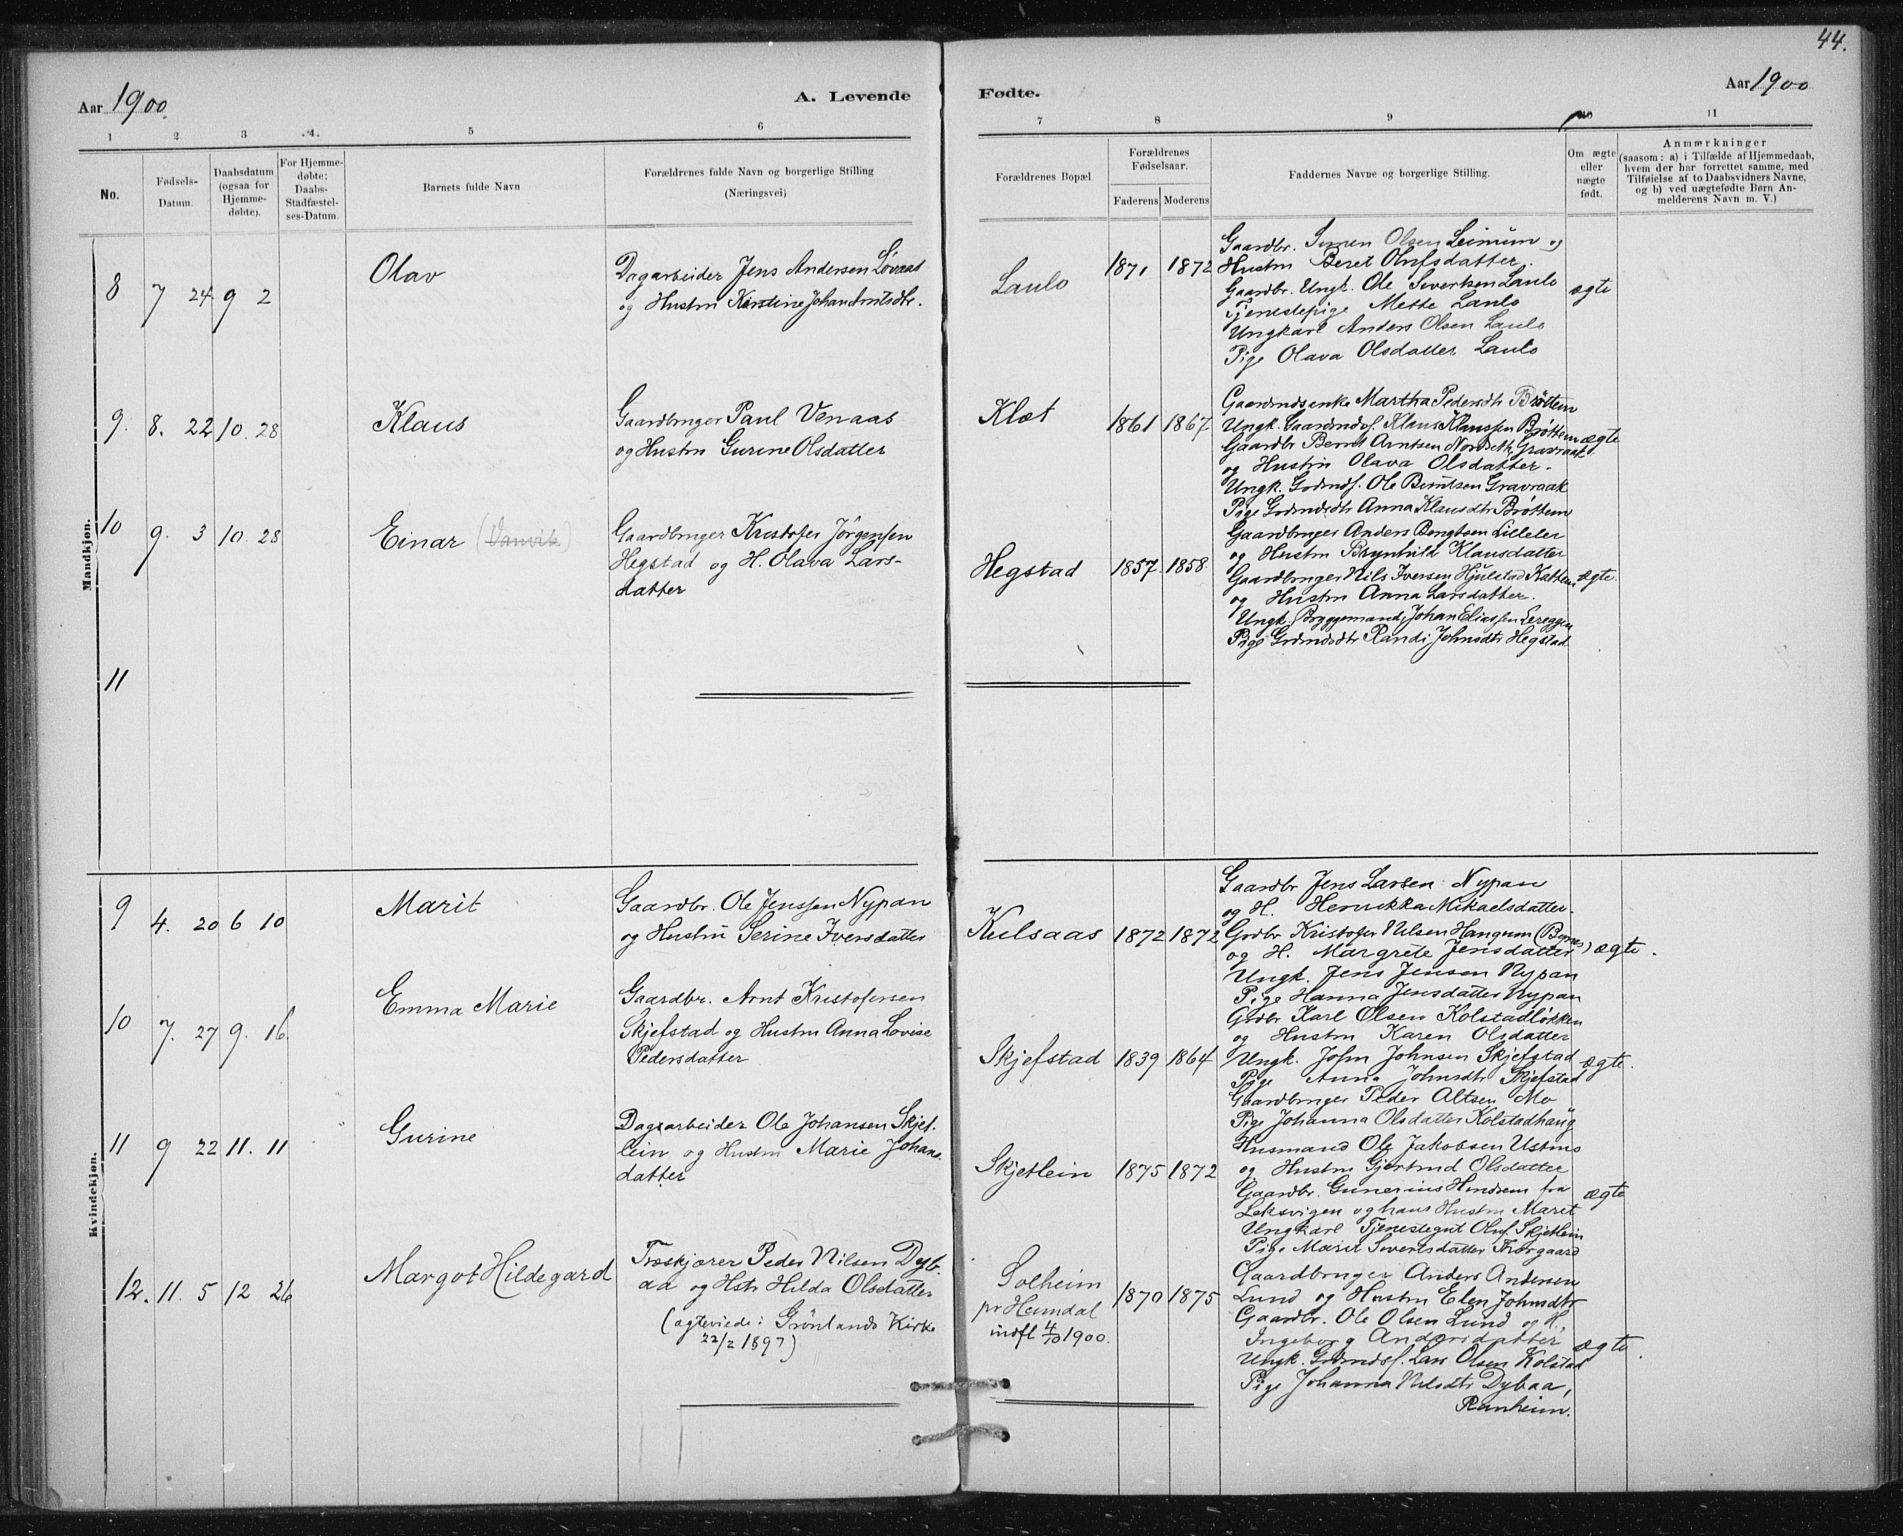 44.
Aar 1900.
A. Levende
Fødte.
Aar 1900
1 2 3 .4. 5 6
7 8 9 10 11
No.
Fødsels-
Datum.
Daabsdatum
(ogsaa for
Hjemme-
døbte).
For Hjemme-
døbte:
Daabs-
Stadfæstel-
ses-Datum.
Barnets fulde Navn
Forældrenes fulde Navn og borgerlige Stilling
(Næringsvei)
Forældrenes Bopæl
Forældrenes
Fødselsaar.
Faderens Moderens
Faddernes Navne og borgerlige Stilling.
Om ægte
eller
uægte
født.
Anmærkninger
(saasom: a) i Tilfælde af Hjemmedaab,
hvem der har forrettet samme, med
Tilføielse af to Daabsvidners Navne,
og b) ved uægtefødte Børn An-
melderens Navn m. V.)
Mandkjøn.
8 7 24 9 2
Olav
Dagarbeider Jens Andersen Løvaas
og Hustru Kirstine Johan Arntsdtr.
Laulo
1871 1872
Gaardbr. Simen Olsen Leinum og
Hustru Beret Olufsdatter.
Gaardbr. Ungk. Ole Sivertsen Laulo
Tjenestepige Mette Laulo
Ungkarl Anders Olsen Laulo
Pige Olava Olsdatter Laulo
ægte
9. 8. 22 10. 28
Klaus
Gaardbruger Paul Venaas
og Hustru Gurine Olsdatter
Klæt
1861 1867
Gaardmdsenke Martha Pedersdtr Brøttem
Ungk. Gaardmdsf. Klaus Klaussen Brøttem
Gaardbr Bernt Arntsen Nordseth, Gravraak
og Hustru Olava Olsdatter.
Ungk. Grdmdsf. Ole Berntsen Gravraak
Pige Grdmdsdtr Anna Klausdtr Brøttem
ægte
10 9. 3 10. 28
Einar (Vanvik)
Gaardbruger Kristofer Jørgensen
Hegstad og H. Olava Lars-
datter
Hegstad
1857. 1858.
Gaardbruger Anders Bengtsen Lilleler
og Hustru Brynhild Klausdatter
Gaardbruger Nils Iversen Hjulstad Kattem
og Hustru Anna Larsdatter.
Ungk. Bryggemand Johan Eliassen Lereggen
Pige Grdmdsdtr Randi Johnsdtr Hegstad
ægte.
11
Kvindekjøn.
9 4. 20 6 10
Marit
Gaardbr. Ole Jenssen Nypan
og Hustru Serine Iversdatter
Kulsaas
1872 1872
Gaardbr Jens Larsen Nypan
og H. Henrikka Mikaelsdatter.
Grdbr Kristofer Nilsen Hangum
og H. Margrete Jensdatter
Ungk. Jens Jensen Nypan
Pige Hanna Jensdatter Nypan
ægte.
10 7. 27 9. 16
Emma Marie
Gaardbr. Arnt Kristofersen
Skjefstad og Hustru Anna Lovise
Pedersdatter
Skjefstad
1839 1864
Grdbr Karl Olsen Kolstadløkken
og Hustru Karen Olsdatter
Ungk. John Johnsen Skjefstad
Pige Anna Johnsdtr Skjefstad
Gaardbruger Peder Altsen Mo
Pige Johanna Olsdatter Kolstadhaug
ægte.
11 9 22 11. 11
Gurine
Dagsarbeider Ole Johansen Skjet-
lein og Hustru Marie Johans-
datter
Skjetlein
1875 1872
Husmand Ole Jakobsen Ustmo
og Hustru Gjertrud Olsdatter
Gaardbr. Gunerius Hindrem fra
Leksvigen og hans Hustru Marit
Ungkarl Tjenestegut Oluf Skjetlein
Pige Marit Sivertsdatter Thorgaard
ægte
12. 11. 5 12 26
Margot Hildegard
Træskjærer Peder Nilsen Dyb-
aa og Hstr Hilda Olsdatter
(ægteviede i Grønlands Kirke
22/2 1897)
Solheim
pr Heimdal
indfl 4/10 1900.
1870 1875
Gaardbruger Anders Andersen
Lund og Hustru Elen Johnsdtr
Gaardbr. Ole Olsen Lund og H.
Ingeborg Andersdatter
Ungk. Grdmdsf. Lars Olsen Kolstad
Pige Johanna Nilsdtr Dybaa,
Ranheim.
ægte.